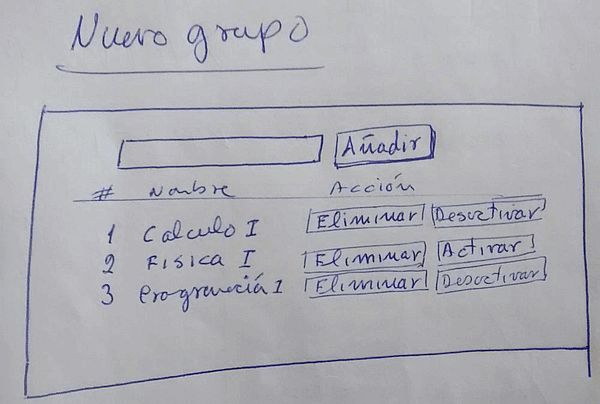 Nuevo grupo
Añadir
# Nombre Acción
1 Calculo I Eliminar Desactivar
2 Fisica I Eliminar Activar
3 Programación I Eliminar Desactivar